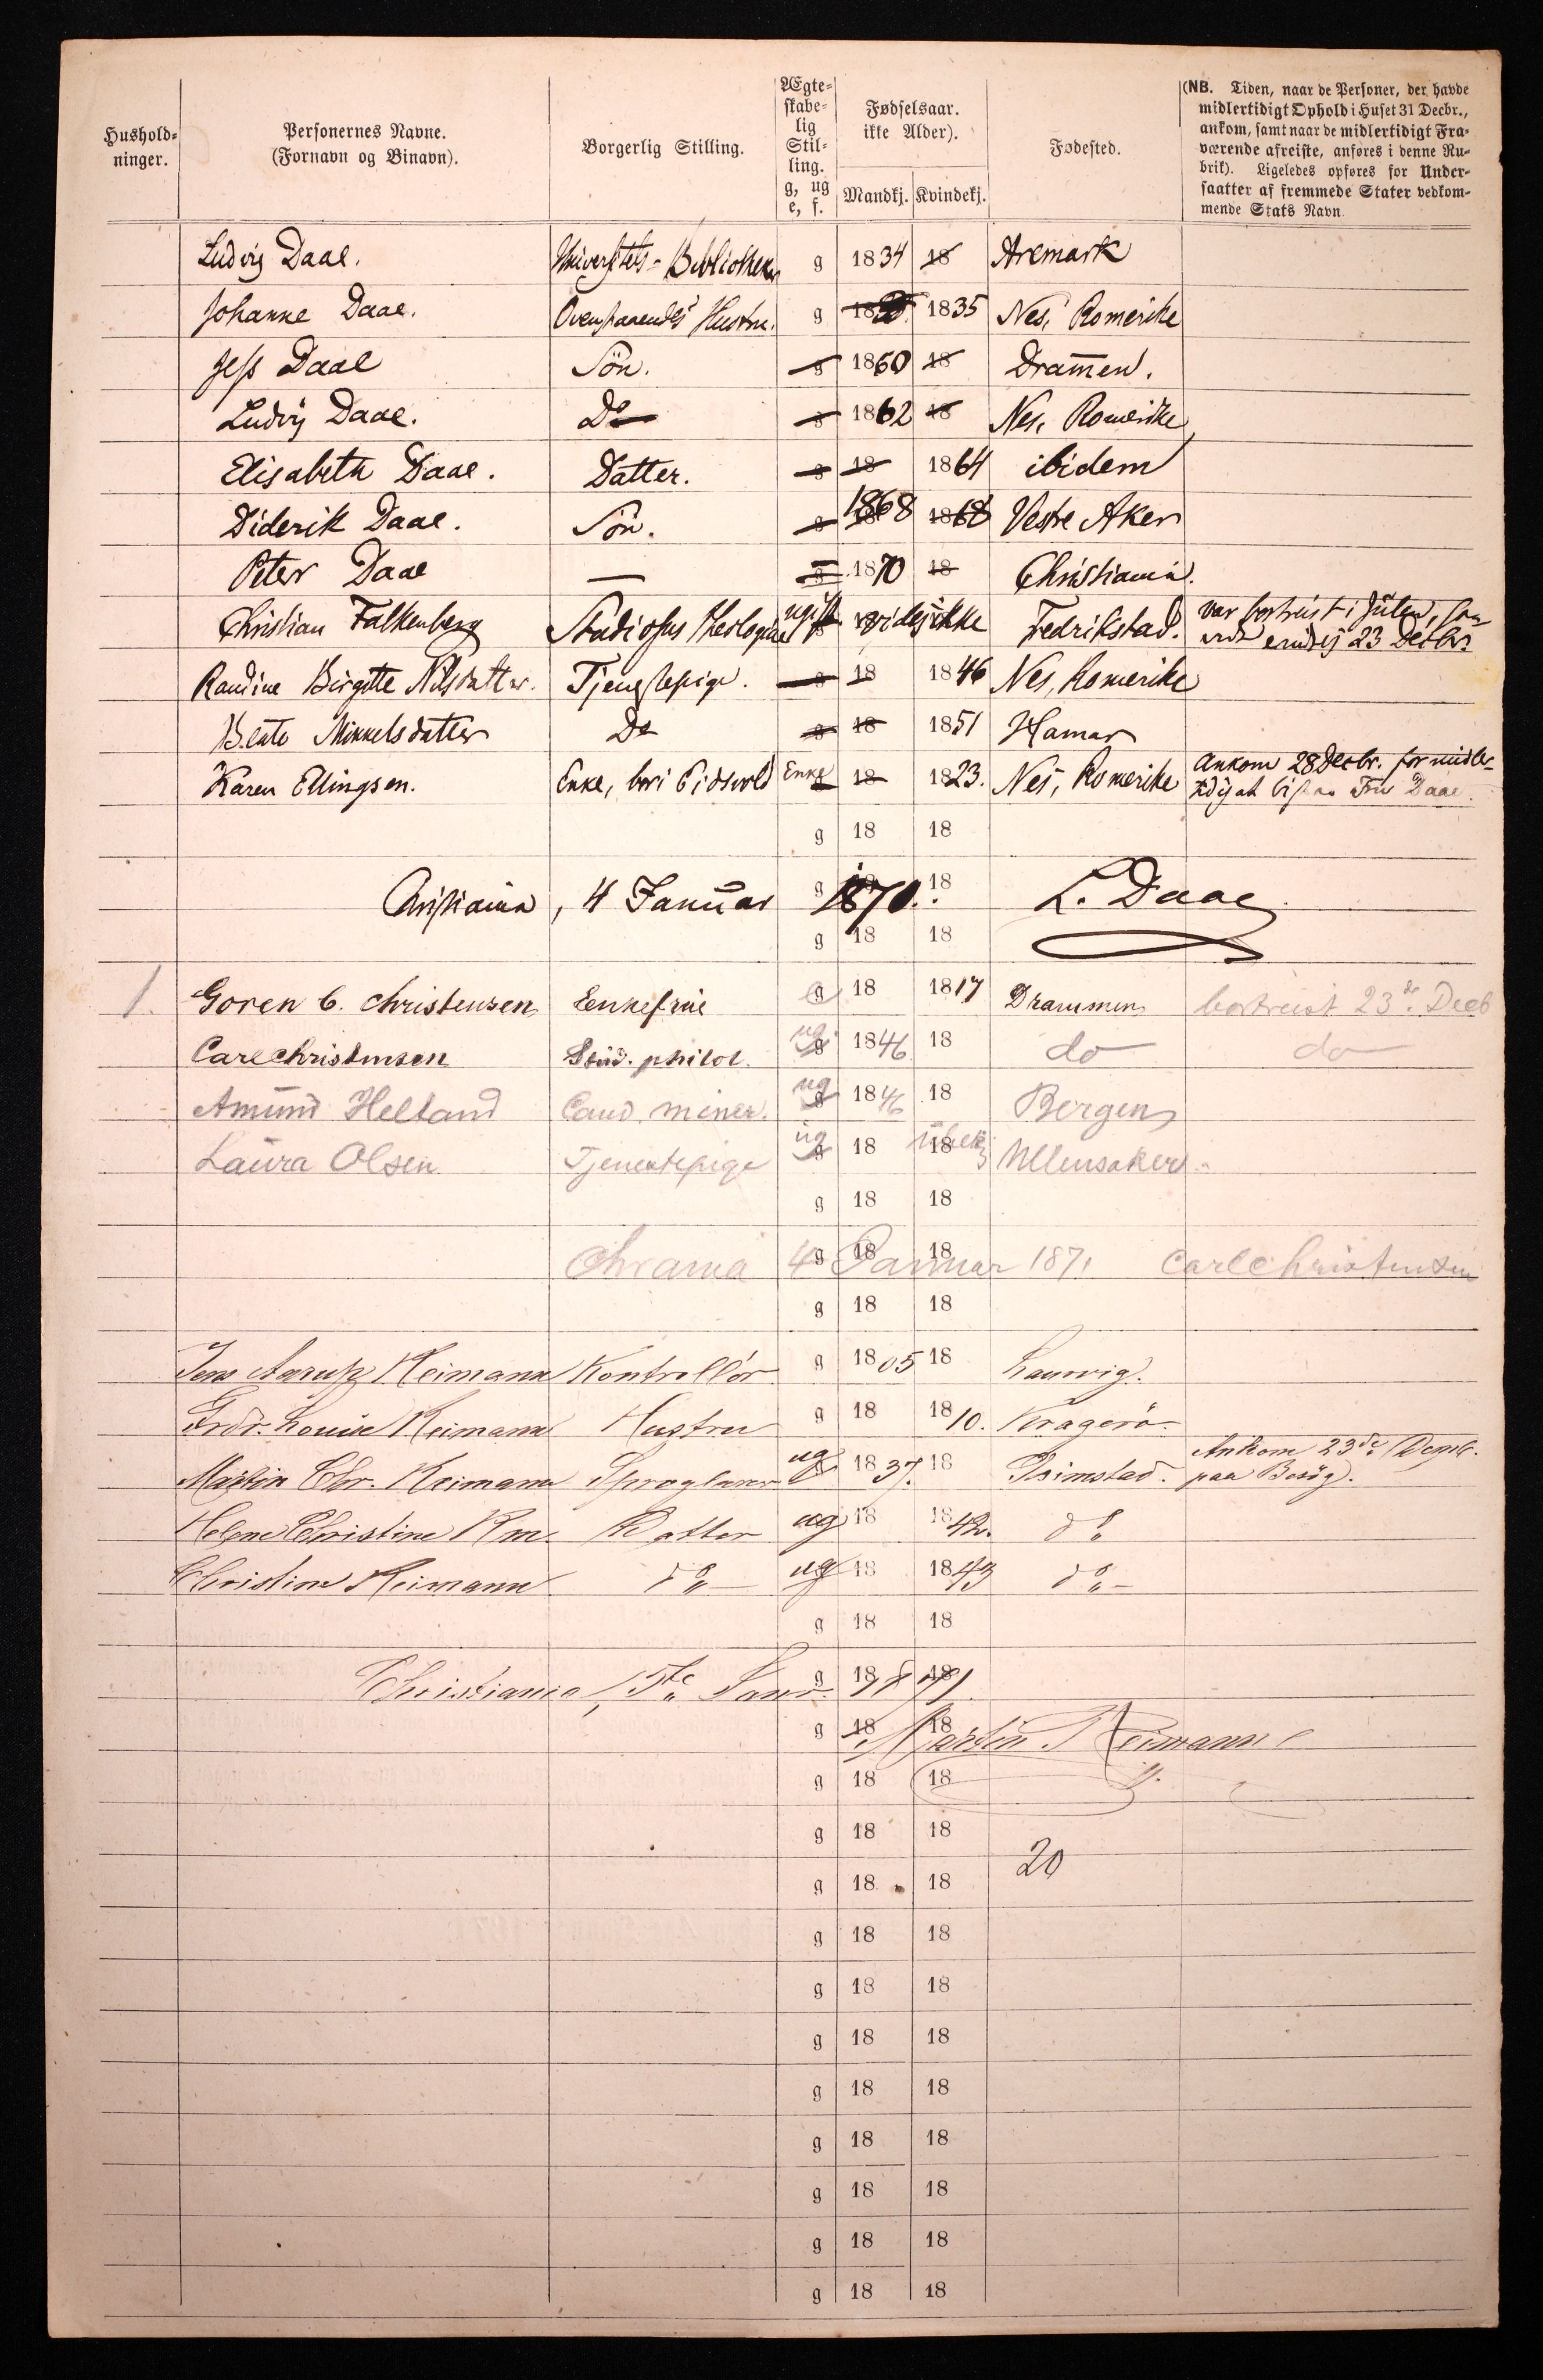 Hushold-
ninger.
Personernes Navne.
(Fornavn og Binavn).
Borgerlig Stilling.
Ægte-
skabe-
lig
Stil-
ling.
g, ug
e, f.
Fødselsaar.
ikke Alder).
Mandkj. Kvindekj.
Fødested.
(NB. Tiden, naar de Personer, der havde
midlertidigt Ophold i Huset 31 Decbr.,
ankom, samt naar de midlertidigt Fra-
værende afreiste, anføres i denne Ru-
brik). Ligeledes opføres for Under-
saatter af fremmede Stater vedkom-
mende Stats Navn.
Ludvig Daae. Universitets-Bibliothekar g 1834 18 Aremark
Johanne Daae. Ovenstaaendes Hustru. g 18 1835 Nes, Romerike
Jess Daae Sön. g 1860 18 Dram̄en.
Ludvig Daae. Do g 1862 18 Nes, Romerike
Elisabeth Daae. Datter. g 18 1864 ibidem
Diderik Daae. Sön. g 1868 1868 Vestre Aker
Peter Daae — g 1870 18 Christiania.
Christian Falkenberg Studiosus theologiæ ugift vides ikke Fredrikstad. var bortreist i Julen,
23 Decbr.
Randine Birgitte Nilsdatter. Tjenestepige. g 18 1846 Nes, Romerike
Beate Mikkelsdatter Do g 18 1851 Hamar
Karen Ellingsen. Enke, bor i Eidsvold Enke 18 1823. Nes, Romerike Ankom 28 Decbr. for midler-
tidig at bistaa Fru Daae.
g 18 18
Christiania, 4 Januar 1870. g 18 L. Daae
g 18 18
1. Goren C. Christensen Eenkefrue e 18 1817 Drammen bortreist 23de Decb
Carl Christensen Stud. philol. ug 1846 18 do do
Amund Helland Cand. miner. ug 1846 18 Bergen
Laura Olsen Tjenestepige ug 18 18 Ullensaker
g 18 18
Chrania 4 Januar 1871 Carl Christensen g 18 18
g 18 18
Jens Aarup Heimann Kontrollör g 1805 18 Laurvig.
Frdr. Louise Heimann Hustru g 18 1810. Kragerö
Martin Chr. Heimann Sproglærer ug 1837. 18 Grimstad. Ankom 23de Decmb.
paa Besög.
Helene Christine Hm. Datter ug 18 1842. do
Christine Heimann do ug 18 1843 do
g 18 18
Christiania, 5te Janr. 1871 g 18 18
g 18 18 Martin Heimann
g 18 18
g 18 18
20
g 18 18
g 18 18
g 18 18
g 18 18
g 18 18
g 18 18
g 18 18
g 18 18
g 18 18